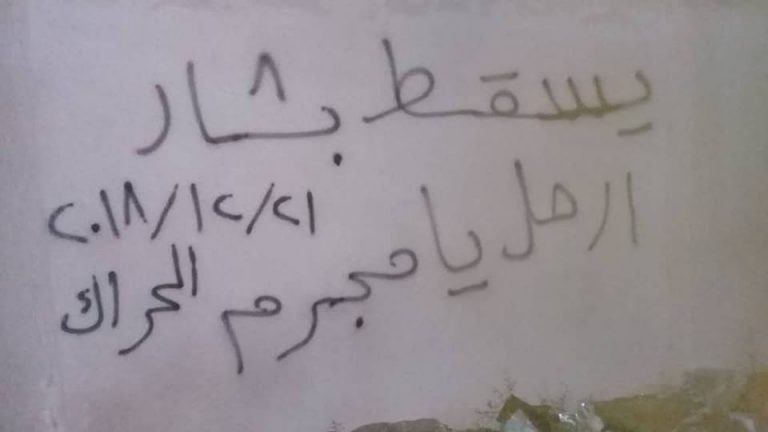 يسقط بشار
ارحل يا مجرم
٢٠١٨/١٢/٢١
الحراك